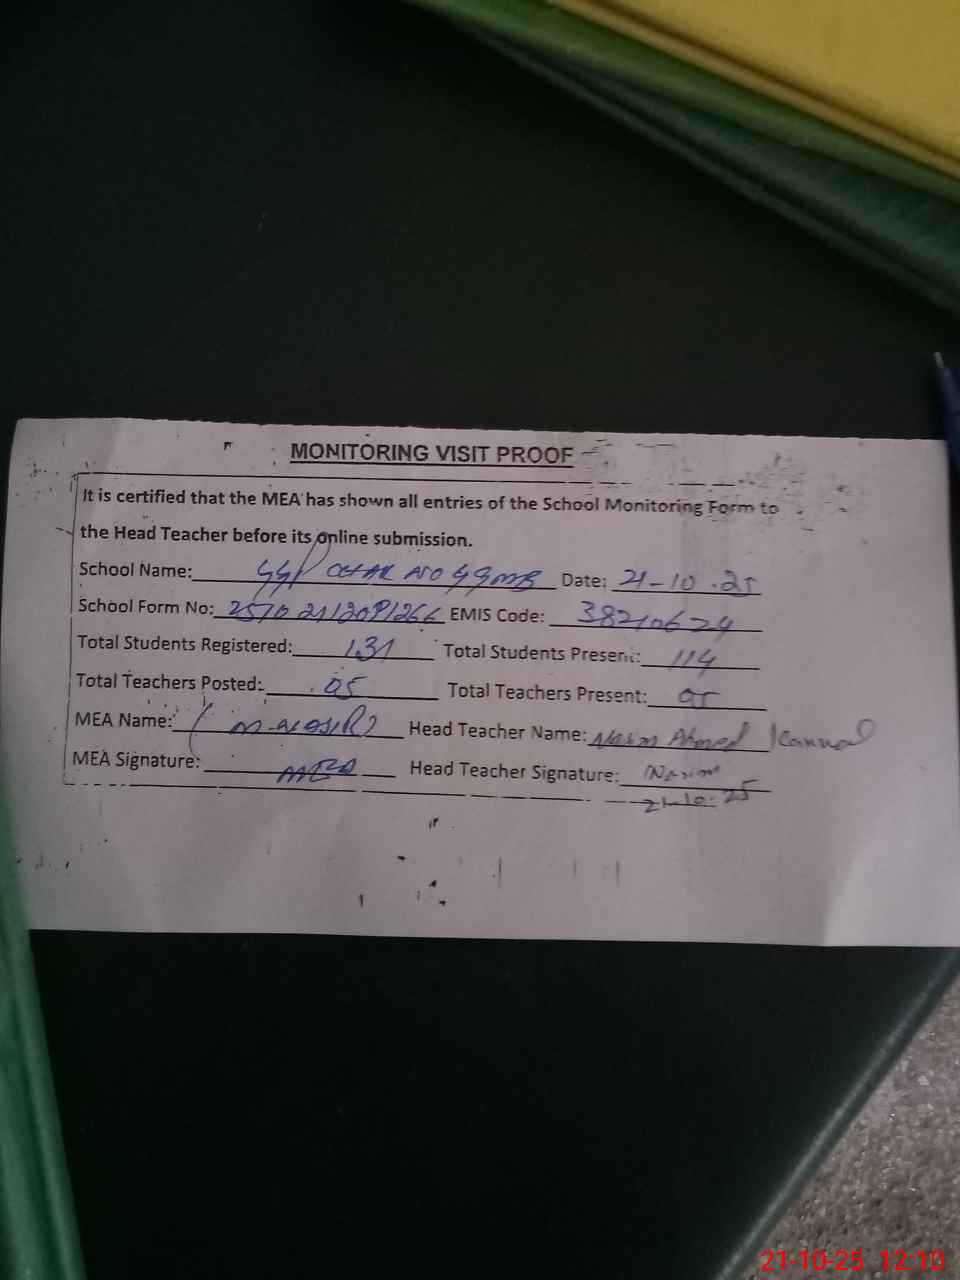 MONITORING VISIT PROOF
It is certified that the MEA has shown all entries of the School Monitoring Form to
the Head Teacher before its online submission.
School Name: NO Date: 21-10-25
School Form No: EMIS Code: 38210624
Total Students Registered: 131 Total Students Present: 114
Total Teachers Posted: 05 Total Teachers Present: 05
MEA Name: Head Teacher Name: Ahmed Kanwal
MEA Signature: MEA Head Teacher Signature:
21-10-25
21-10-25 12:10